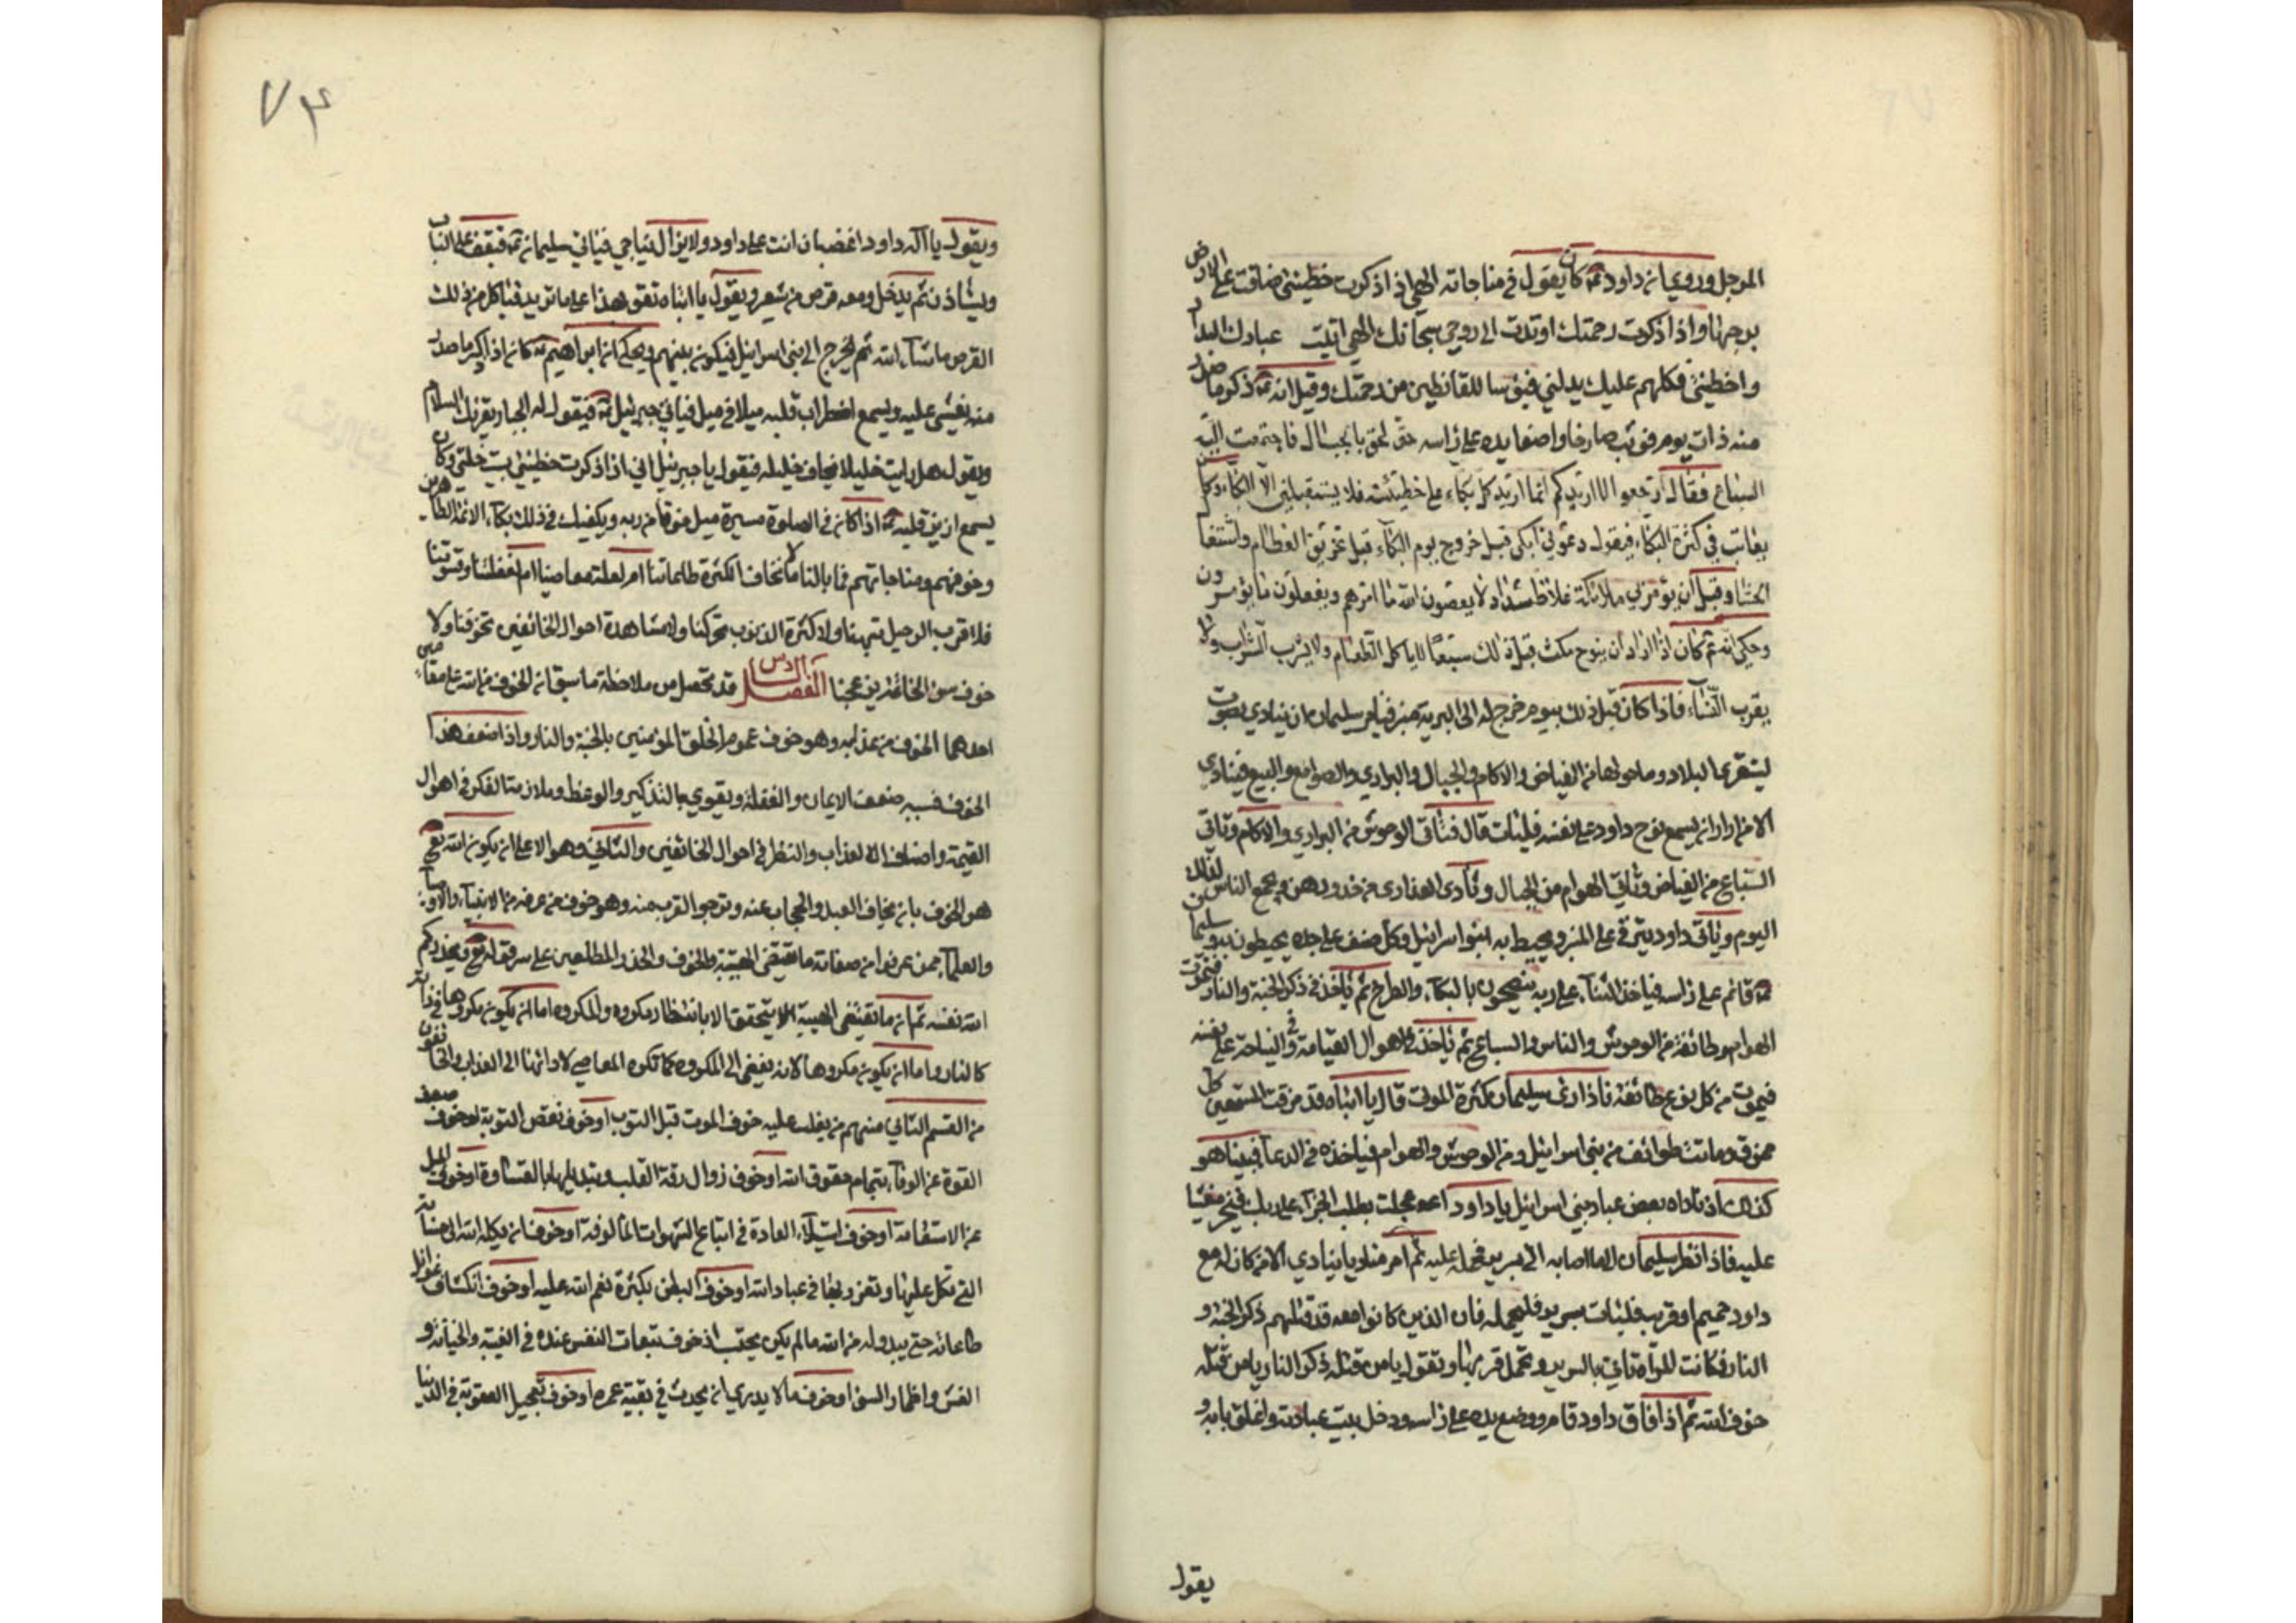 المرجل وروي ان داود ع كان يقول في مناجاته الهي اذا ذكرت خطيئتي ضاقت علي الارض
برحبها واذا ذكرت رحمتك ارتدت الي روحي سبحانك الهي اتيت عبادك
واخطيئتي فكلهم عليك يدلني فبؤسا للقانطين من رحمتك وقيل انه ع ذكر ما
منه ذات يوم فوثب صارخا واضعا يده على راسه حتى لحق بالجبال فاجتمعت اليه
السباع فقال ارجعوا لا اريدكم انما اريد كل بكاء على خطيئته فلا يستقبلني الا البكاء وكان
يعاتب في كثرة البكاء فيقول دعوني ابكي قبل خروج يوم البكاء قبل تخريق العظام واشتعال
الحشا وقبل ان يؤمر بي ملائكة غلاظ شداد لا يعصون الله ما امرهم ويفعلون ما يؤمرون
وحكي انه ع كان اذا اراد ان ينوح مكث قبل ذلك سبعا لا ياكل الطعام ولا يشرب الشراب ولا
يقرب النساء فاذا كان قبل ذلك بيوم خرج له الى البرية منبر فيامر سليمان ان ينادي بصوت
يستقري البلاد وما حولها من الغياض والاكام والجبال والبوادي والصوامع والبيع فينادي
الا من اراد ان يسمع نوح داود على نفسه فليات قال فتاتي الوحوش من البوادي والاكام وتاتي
السباع من الغياض وتاتي الهوام من الجبال وتاتي العذارى من خدورهن ويجمع الناس لذلك
اليوم وياتي داود يترقى على المنبر ويحيط به بنو اسرائيل وكل صنف على حدة يحيطون به وسليمان
ع قائم على راسه فياخذ الثناء على ربه فيضجون بالبكاء والصراخ ثم ياخذ في ذكر الجنة والنار فتموت
الهوام وطائفة من الوحوش والناس والسباع ثم ياخذ في اهوال القيامة وفي النياحة على نفسه
فيموت من كل نوع طائفة فاذا راى سليمان كثرة الموت قال يا ابتاه قد مزقت المستمعين كل
ممزق وماتت طوائف من بني اسرائيل ومن الوحوش والهوام فياخذه في الدعاء فبينا هو
كذلك اذ ناداه بعض عباد بني اسرائيل يا داود عجلت بطلب الجزاء على ربك فيخر مغشيا
عليه فاذا نظر سليمان الى ما اصابه اتى بسرير فحمله عليه ثم امر مناديا ينادي الا من كان له مع
داود حميم او قريب فليات بسرير فليحمله فان الذين كانوا معه قد قتلهم ذكر الجنة و
النار فكانت المراة تاتي بالسرير وتحمل قريبها وتقول يا من قتله ذكر النار يا من قتله
خوف الله ثم اذا افاق داود قام ووضع يده على راسه ودخل بيت عبادته واغلق بابه و
يقول
٧٤
ويقول يا اله داود اغضبان انت على داود ولا يزال يناجي فياتي سليمان ع فيقف على الباب
ويستاذن ثم يدخل ومعه قرص من شعير ويقول يا ابتاه تقو بهذا على ما تريد فياكل من ذلك
القرص ما شاء الله ثم يخرج الى بني اسرائيل فيكون بينهم ويحكى ان ابراهيم ع كان اذا ذكر ما صدر
منه يغشى عليه ويسمع اضطراب قلبه ميلا في ميل فياتي جبرئيل ع فيقول له الجبار يقرئك السلام
ويقول هل رايت خليلا يخاف خليله فيقول يا جبرئيل اني اذا ذكرت خطيئتي نسيت خلتي وكان
يسمع ازيز قلبه ع اذا كان في الصلوة مسيرة ميل خوفا من ربه ويكفيك في ذلك بكاء الائمة الطاهرين
وخوفهم ومناجاتهم فما بالنا لا نخاف الكثرة طاعاتنا ام لقلة معاصينا ام لغفلتنا وقسوتنا
فلا قرب الرحيل ينبهنا ولا كثرة الذنوب تحركنا ولا مشاهدة احوال الخائفين تخوفنا ولا
خوف سوء الخاتمة يزعجنا الفصل السادس قد تحصل من ملاحظة ما سبق ان الخوف من الله على مقامين
احدهما الخوف من عذابه وهو خوف عموم الخلق المؤمنين بالجنة والنار واذا ضعف هذا
الخوف فسببه ضعف الايمان والغفلة ويقوي بالتذكير والوعظ وملازمة الفكر في اهوال
القيمة واصناف العذاب والنظر في احوال الخائفين والثاني وهو الاعلى ان يكون الله تع
هو المخوف بان يخاف العبد والحجاب عنه ويرجو القرب منه وهو خوف من عرفه من الانبياء والاوصياء
والعلماء ممن عرفوا من صفاته ما يقتضي الهيبة والخوف والحذر المطلعين على سر قوله تع ويحذركم
الله نفسه ثم ان ما يقتضي الهيبة لا يتحقق الا بانتظار مكروه والمكروه اما ان يكون مكروها في ذاته
كالنار واما ان يكون مكروها لانه يفضي الى المكروه كما تكره المعاصي لادائها الى العذاب والخائفون
من القسم الثاني منهم من يغلب عليه خوف الموت قبل التوبة او خوف نقض التوبة او خوف ضعف
القوة عن الوفاء بتمام حقوق الله او خوف زوال رقة القلب وتبديلها بالقساوة او خوف الميل
عن الاستقامة او خوف استيلاء العادة في اتباع الشهوات المالوفة او خوف ان يكله الله الى حسناته
التي تكل عليها وتعزز بها في عباد الله او خوف البطر بكثرة نعم الله عليه او خوف انكشاف غوائل
طاعاته حتى يبدو له من الله ما لم يكن يحتسب او خوف تبعات النفس عنده في الغيبة والخيانة و
الغش واظهار السوء او خوف ما لا يدري ان يحدث في بقية عمره او خوف تعجيل العقوبة في الدنيا